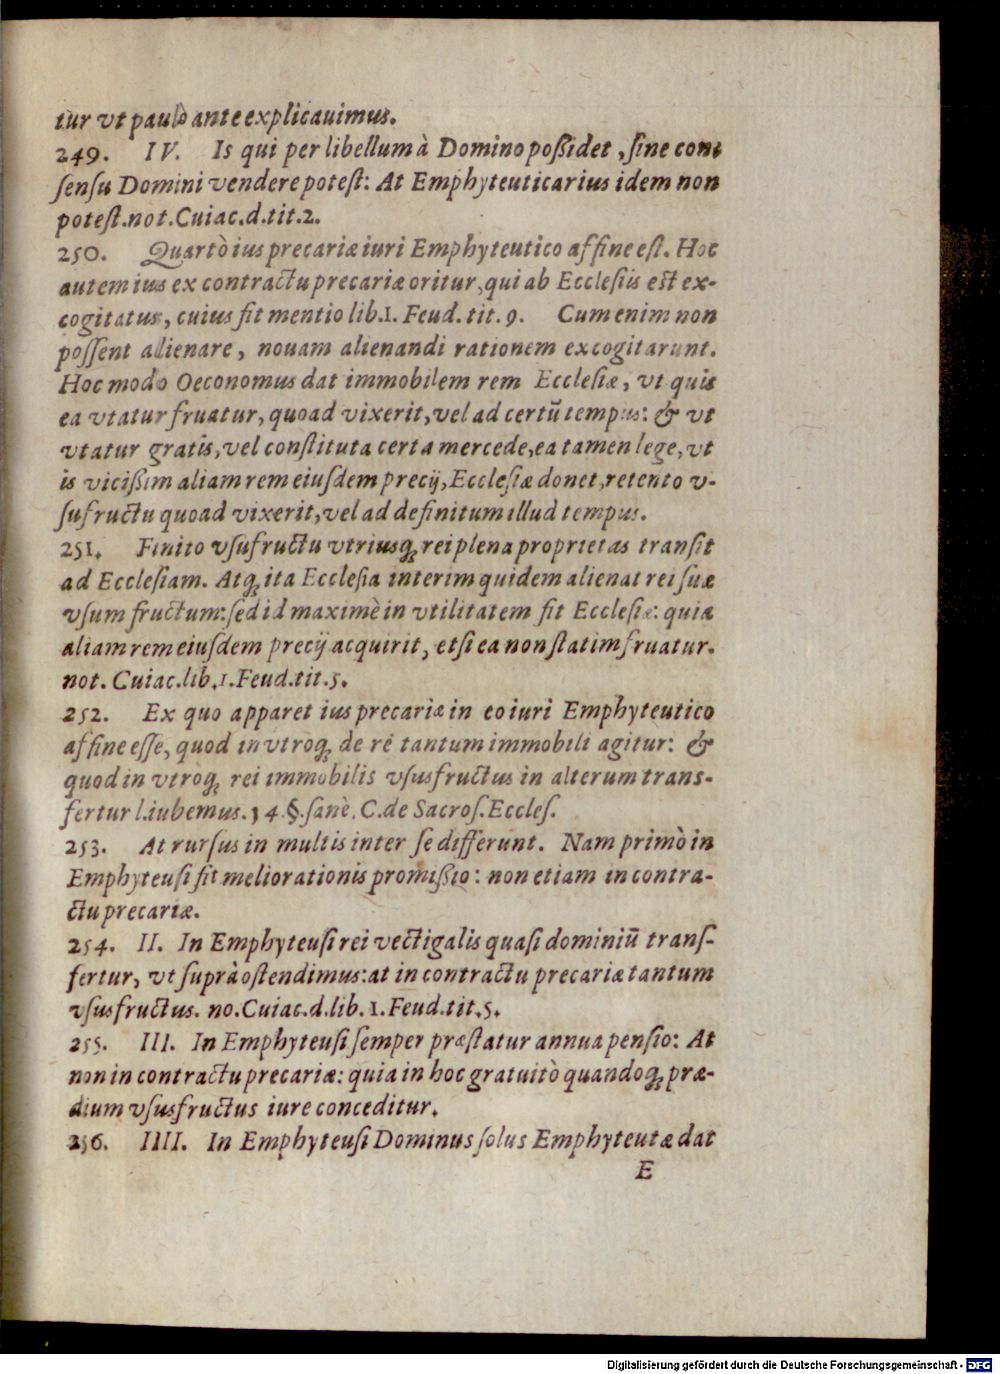 tur vt paulò ante explicauimus.
249. IV. Is qui per libellum à Domino poßidet, ſine con-
ſenſu Domini vendere poteſt: At Emphyteuticarius idem non
poteſt. not. Cuiac. d. tit. 2.
250. Quartò ius precariæ iuri Emphyteutico affine eſt. Hoc
autem ius ex contractu precariæ oritur, qui ab Eccleſiis est ex-
cogitatus, cuius fit mentio lib. 1. Feud. tit. 9. Cum enim non
poſſent alienare, nouam alienandi rationem excogitarunt.
Hoc modo Oeconomus dat immobilem rem Ecclesiæ, vt quis
ea vtatur fruatur, quoad vixerit, vel ad certū tempus: & vt
vtatur gratis, vel conſtituta certa mercede, ea tamen lege, vt
is vicißim aliam rem eiuſdem precij, Eccleſiæ donet, retento v-
ſufructu quoad vixerit, vel ad definitum illud tempus.
251. Finito vſufructu vtriusq́; rei plena proprietas tranſit
ad Eccleſiam. Atq́; ita Eccleſia interim quidem alienat rei ſuæ
vſum fructum: ſed id maximè in vtilitatem fit Eccleſiæ: quia
aliam rem eiuſdem precij acquirit, etſi ea non ſtatim fruatur.
not. Cuiac. lib. 1. Feud. tit. 5.
252. Ex quo apparet ius precariæ in eo iuri Emphyteutico
affine eſſe, quod in vtroq́; de re tantum immobili agitur: &
quod in vtroq́; rei immobilis vſusfructus in alterum trans-
fertur l. iubemus. 14. §. ſanè. C. de Sacroſ. Eccleſ.
253. At rurſus in multis inter ſe differunt. Nam primò in
Emphyteuſi fit meliorationis promißio: non etiam in contra-
ctu precariæ.
254. II. In Emphyteuſi rei vectigalis quaſi dominiū tranſ-
fertur, vt ſuprà oſtendimus: at in contractu precariæ tantum
vſusfructus. no. Cuiac. d. lib. 1. Feud. tit. 5.
255. III. In Emphyteuſi ſemper præſtatur annua penſio: At
non in contractu precariæ: quia in hoc gratuitò quandoq́; præ-
dium vſusfructus iure conceditur.
256. IIII. In Emphyteuſi Dominus ſolus Emphyteutæ dat
E
Digitalisierung gefördert durch die Deutsche Forschungsgemeinschaft - DFG